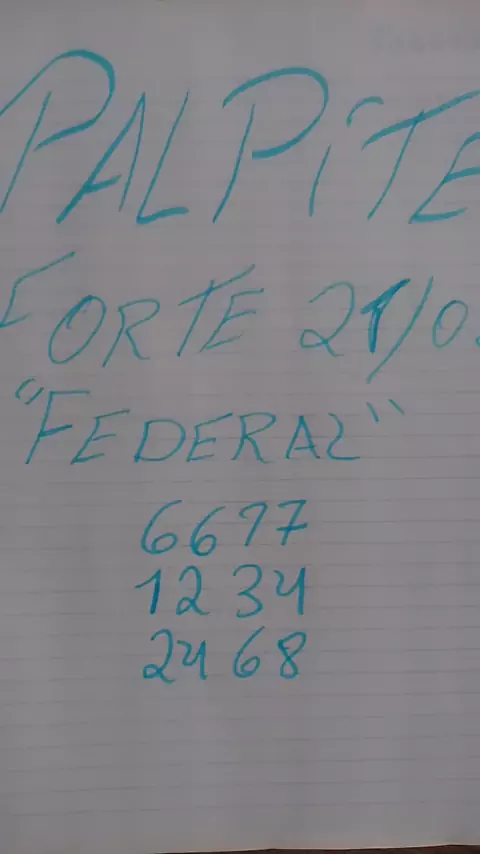 PALPiTE
FORTE 21/0
"FEDERAL"
6677
1234
2468